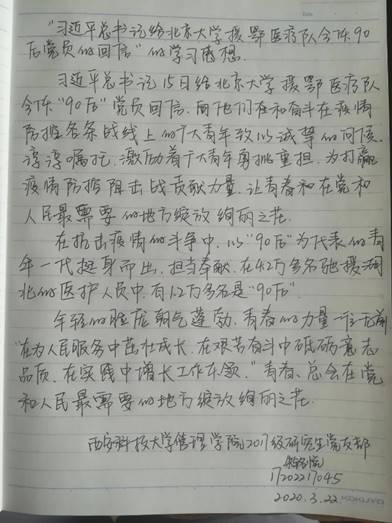 "习近平总书记给北京大学援鄂医疗队全体"90
后"党员的回信"的学习感想.
习近平总书记15日给北京大学援鄂医疗队
全体"90后"党员回信,向他们在和奋斗在疫情
防控各条战线上的广大青年致以诚挚的问候.
谆谆嘱托,激励着广大青年勇挑重担,为打赢
疫情防控阻击战贡献力量,让青春和在党和
人民最需要的地方绽放绚丽之花.
在抗击疫情的斗争中,以"90后"为代表的青
年一代挺身而出,担当奉献,在4.2万多名驰援湖
北的医护人员中,有1.2万多名是"90后".
年轻的脸庞朝气蓬勃,青春的力量一往无前
"在为人民服务中茁壮成长、在艰苦奋斗中砥砺意志
品质、在实践中增长工作本领."青春,总会在党
和人民最需要的地方绽放绚丽之花.
西安科技大学管理学院2017级研究生党支部
17202217045
2020.3.22
KOKUYO